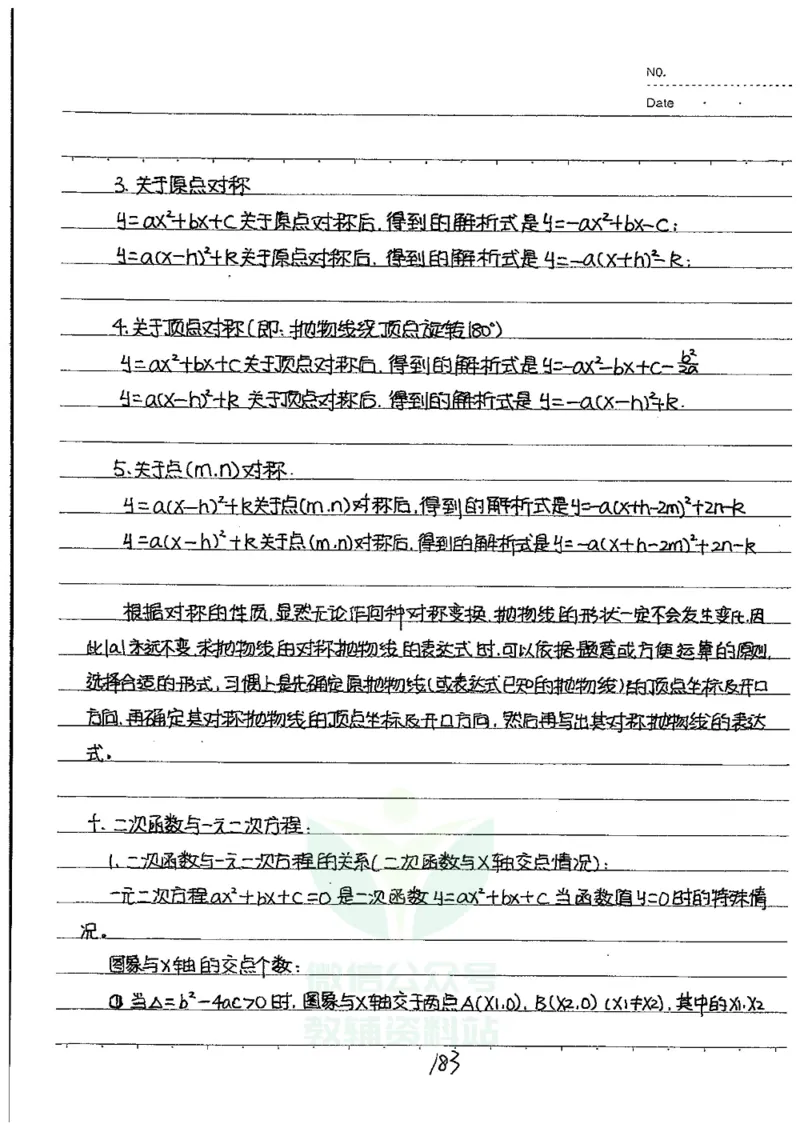 NO.
Date
3. 关于原点对称
y=ax²+bx+c关于原点对称后,得到的解析式是y=-ax²+bx-c;
y=a(x-h)²+k关于原点对称后,得到的解析式是y=-a(x+h)²-k;
4.关于顶点对称(即:抛物线绕顶点旋转180°)
y=ax²+bx+c关于顶点对称后,得到的解析式是y=-ax²-bx+c-b²/2a
y=a(x-h)²+k 关于顶点对称后,得到的解析式是 y=-a(x-h)²+k.
5.关于点(m.n)对称.
y=a(x-h)²+k关于点(m.n)对称后,得到的解析式是y=-a(x+h-2m)²+2n-k
y=a(x-h)²+k关于点(m.n)对称后,得到的解析式是y=-a(x+h-2m)²+2n-k
根据对称的性质,显然无论作何种对称变换,抛物线的形状一定不会发生变化,因
此|a|永远不变,求抛物线的对称抛物线的表达式时,可以依据题意或方便运算的原则,
选择合适的形式,习惯上是先确定原抛物线(或表达式已知的抛物线)的顶点坐标及开口
方向,再确定其对称抛物线的顶点坐标及开口方向,然后再写出其对称抛物线的表达
式。
十、二次函数与一元二次方程:
1.二次函数与一元二次方程的关系(二次函数与X轴交点情况):
一元二次方程ax²+bx+c=0是二次函数y=ax²+bx+c当函数值y=0时的特殊情
况。
图象与X轴的交点个数:
①当△=b²-4ac>0时,图象与X轴交于两点A(X1,0),B(X2,0)(X1≠X2),其中的X1,X2
微信公众号
教辅资料站
183